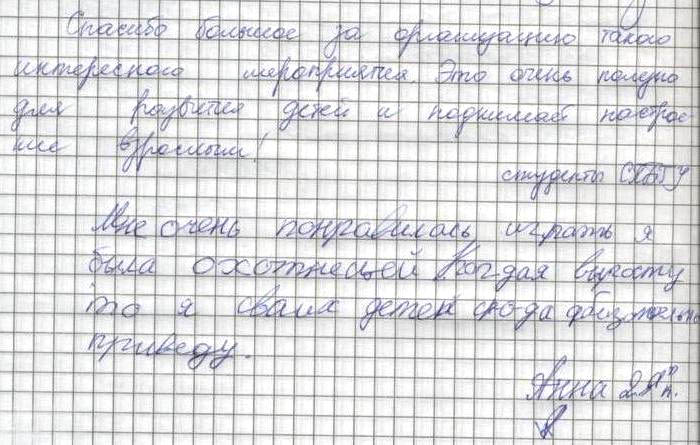 Спасибо большое за организацию такого
интересного мероприятия. Это очень полезно
для развития детей и поднимает настрое
ние взрослым!
студенты СПбГУ
Мне очень понравилась играть я
была охотнецей Когда я вырасту
то я сваих детей сюда
приведу.
Анна